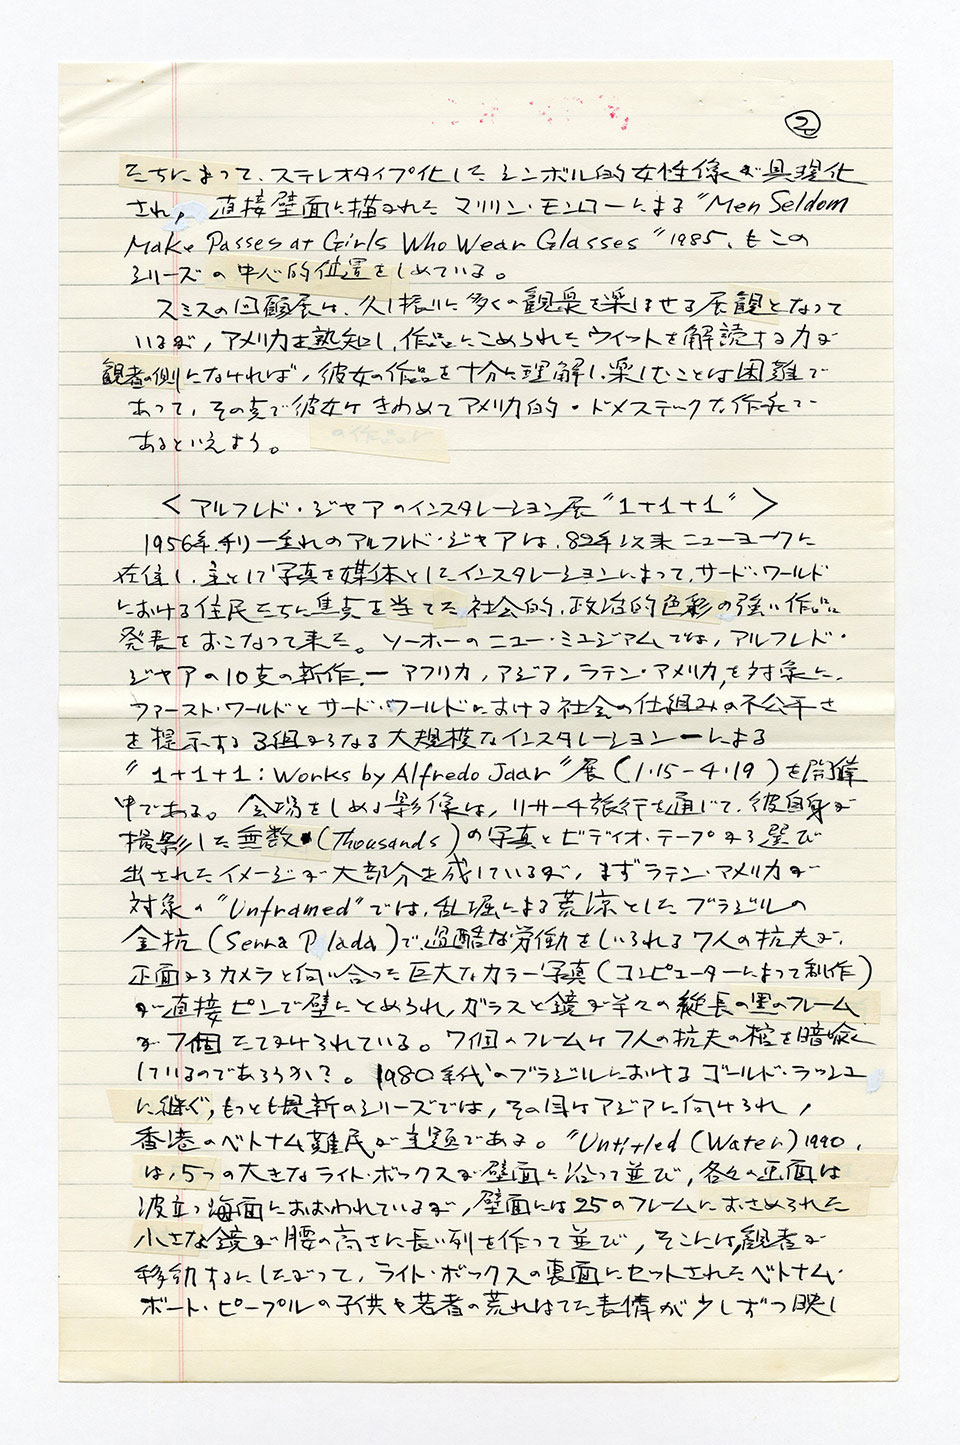 ②
たちによって、ステレオタイプ化したシンボル的女性像が具現化
され, 直接壁面に描かれたマリリン・モンローによる“Men Seldom
Make Passes at Girls Who Wear Glasses” 1985、もこの
シリーズの中心的位置をしめている。
スミスの回顧展は、久し振りに多くの観衆を楽ませる展観となって
いるが, アメリカを熟知し、作品にこめられたウィットを解読する力が
観者の側になければ, 彼女の作品を十分に理解し、楽しむことは困難で
あって、その点で彼女は きわめてアメリカ的・ドメステックな作家で
あるといえよう。
<アルフレド・ジャアのインスタレーション展“1+1+1”>
1956年、チリー生れのアルフレド・ジャアは、82年以来ニューヨークに
在住し、主として写真を媒体としたインスタレーションによって、サード・ワールド
における住民たちに焦点を当てた社会的、政治的色彩の強い作品
発表をおこなって来た。ソーホーのニュー・ミュジアムでは, アルフレド・
ジャアの10点の新作、— アフリカ, アジア, ラテン・アメリカ,を対象に、
ファースト・ワールドとサード・ワールドにおける社会の仕組みの不公平さ
を提示する3組からなる大規模なインスタレーション—による
“1+1+1: Works by Alfredo Jaar”展(1・15-4・19)を開催
中である。会場をしめる影像は, リサーチ旅行を通じて、彼自身が
撮影した無数(Thousands)の写真とビディオ・テープから選び
出されたイメージが大部分を成しているが, まずラテン・アメリカが
対象の“Unframed”では、乱堀による荒涼としたブラジルの
金抗(Serra Plada)で、過酷な労働をしいられる7人の抗夫が、
正面からカメラと向い合った巨大なカラー写真(コンピューターによって制作)
が直接ピンで壁にとめられ, ガラスと鏡が半々の縦長の黒のフレーム
が7個たてかけられている。7個のフレームは7人の抗夫の棺を暗喩
しているのであろうか?。1980年代のブラジルにおけるゴールド・ラッシュ
に継ぐ, もっとも最新のシリーズでは, その目はアジアに向けられ,
香港のベトナム難民が主題である。“Untitled (Water) 1990,
は, 5つの大きなライト・ボックスが壁面に沿って並び, 各々の正面は
波立つ海面におおわれているが, 壁面には25のフレームにおさめられた
小さな鏡が腰の高さに長い列を作って並び, そこには,観者が
移動するにしたがって, ライト・ボックスの裏面にセットされたベトナム・
ボート・ピープルの子供や若者の荒れはてた表情が少しずつ映し